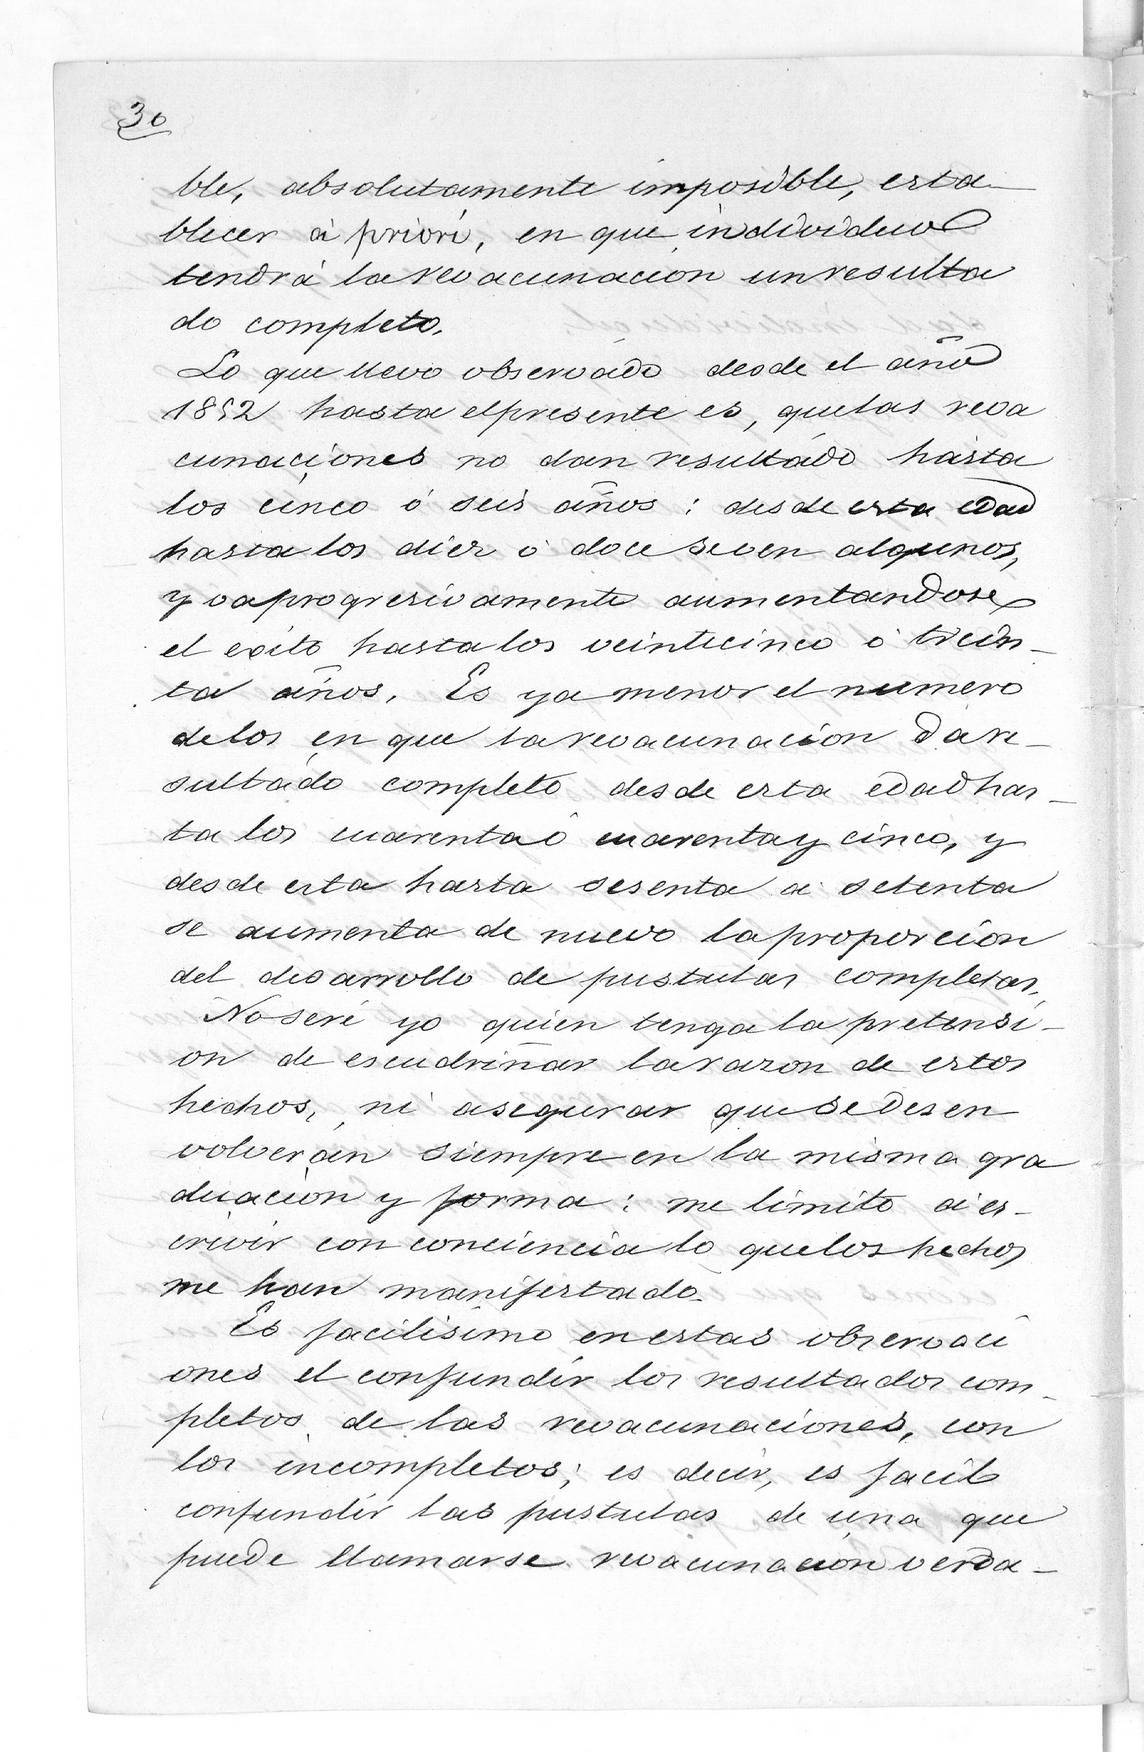 30
ble, absolutamente imposible, esta
blecer á priori, en que individuos
tendrá la revacunacion un resulta
do completo.
Lo que llevo observado desde el año
1852 hasta el presente es, que las reva
cunaciones no dan resultado hasta
los cinco ó seis años: desde esta edad
hasta los diez ó doce se ven algunos,
y va progresivamente aumentandose
el exito hasta los veinticinco ó trein-
ta años. Es ya menor el numero
de los en que la revacunacion da re-
sultado completo desde esta edad has-
ta los cuarenta ó cuarenta y cinco, y
desde esta hasta sesenta á setenta
se aumenta de nuevo la proporcion
del desarrollo de pustulas completas.
No seré yo quien tenga la pretensi-
on de escudriñar la razon de estos
hechos, ni asegurar que se desen
volverán siempre en la misma gra
duacion y forma: me limito á es-
crivir con conciencia lo que los hechos
me han manifestado.
Es facilisimo en estas observaci
ones el confundir los resultados com-
pletos de las revacunaciones, con
los incompletos; es decir, es facil
confundir las pustulas de una que
puede llamarse revacunacion verda-